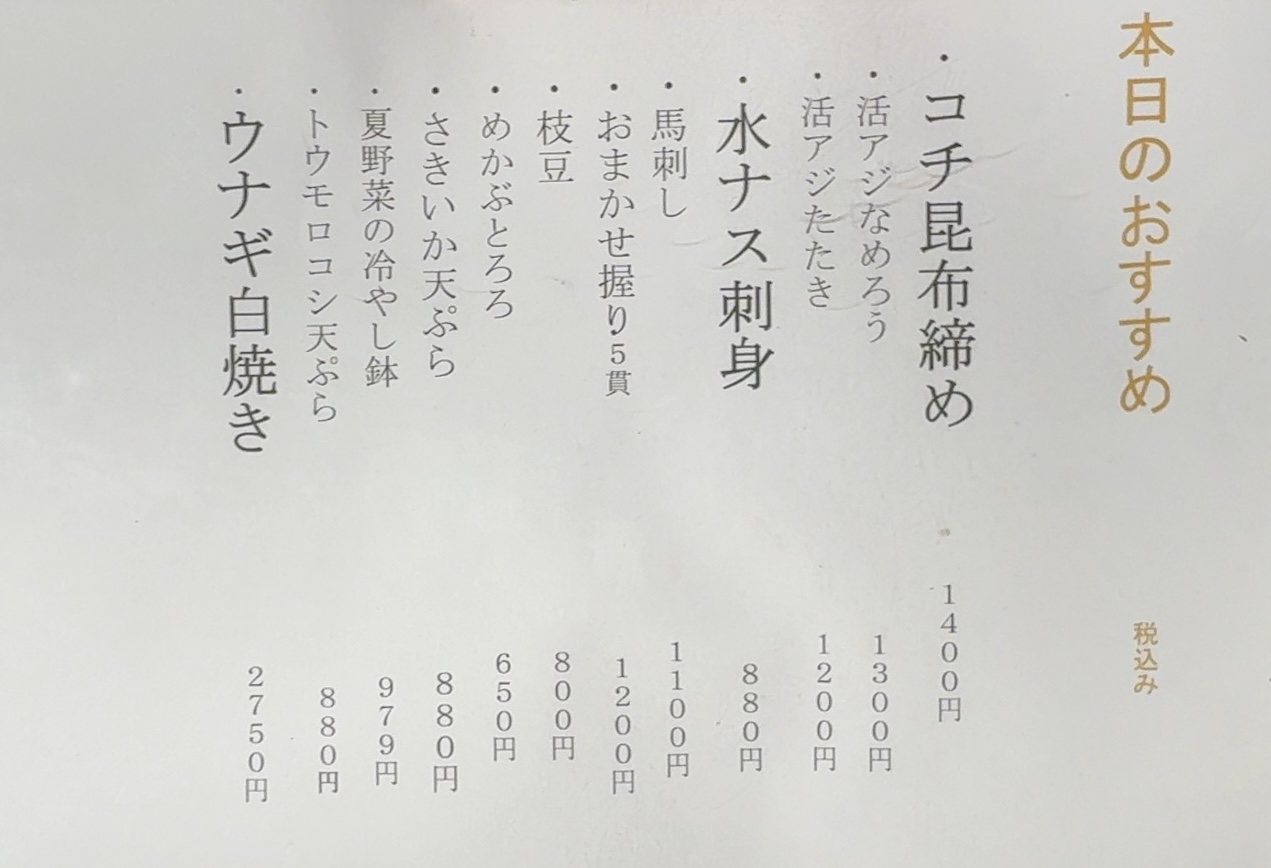 本日のおすすめ 税込み
・コチ昆布締め 1400円
・活アジなめろう 1300円
・活アジたたき 1200円
・水ナス刺身 880円
・馬刺し 1100円
・おまかせ握り5貫 1200円
・枝豆 800円
・めかぶとろろ 650円
・さきいか天ぷら 880円
・夏野菜の冷やし鉢 979円
・トウモロコシ天ぷら 880円
・ウナギ白焼き 2750円